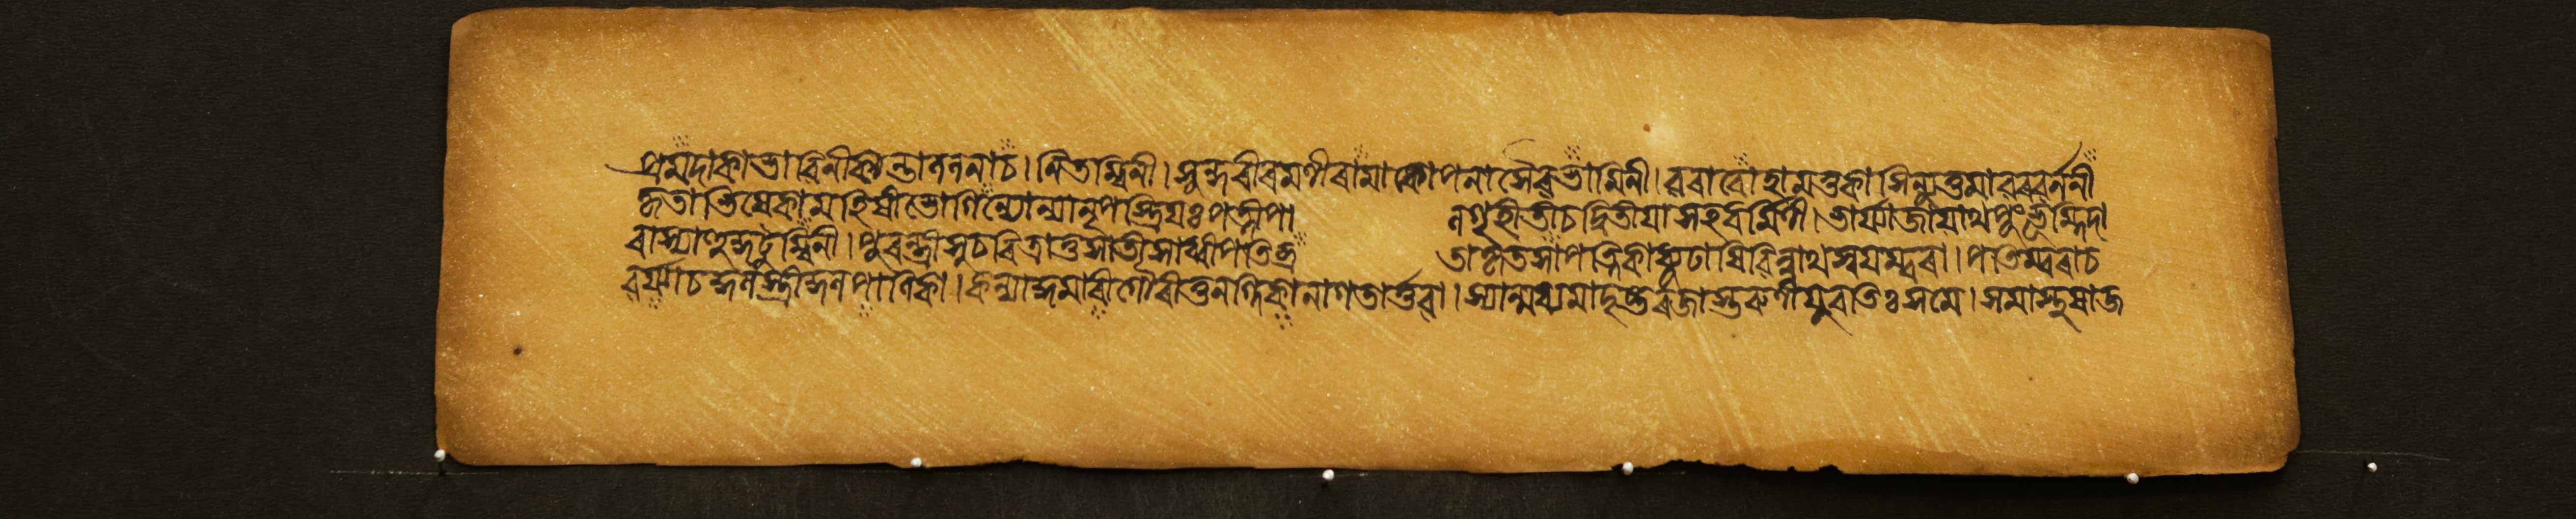 প্রমদাকাভামিনীকান্তাললনাচ। নিতম্বিনী। সুন্দৰীৰমণীৰামাকোপনাসৈবভামিনী। বৰাৰোহামত্তকাসিন্যুত্তমাবৰবর্ননী
কৃতাভিষেকামহিষীভোগিন্যোন্যানৃপস্ত্রিয়ঃপত্নীপা ণিগৃহীতীচদ্বিতীয়াসহধর্মিণী। ভার্য্যাজায়াথপুংভূম্নিদা
ৰাস্যাত্তুকুটুম্বিনী। পুৰন্ধ্রীসুচৰিত্রাতুসতীসাধ্বীপতিব্র তাকৃতসাপত্নিকাধ্যূঢাধিবিন্নাথস্বয়ম্বৰা। পতিম্বৰাচ
বর্য্যাচকুলস্ত্রীকুলপালিকা। কন্যাকুমাৰীগৌৰীতুনগ্নিকানাগতার্ত্তবা। স্যান্মধ্যমাদৃষ্টৰজাস্তৰুণীয়ুবতিঃসমে। সমাস্নুষাজ